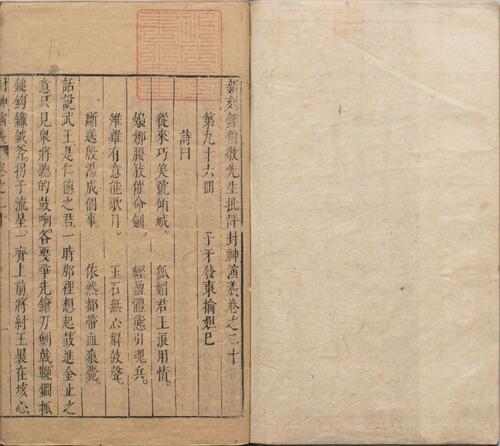 新刻鍾伯敬先生批評封神演義卷之二十
第九十六回 子牙發柬擒妲己
詩曰
從來巧笑號傾城。 狐媚君王浪用情。
嬝娜腰肢催命劍。 輕盈體態引魂兵。
雉雞有意能歌月。 玉石無心解鼓聲。
斷送殷湯成個事。 依然都帶血痕薨。
話說武王是仁德之君一時那裡想起鼓進金止之
意只見衆將聽的鼓响各要爭先鎗刀劍戟鞭鐧抓
鎚鈎鐮鉞斧拐子流星一齊上前將紂王裹在垓心
封神演義 卷之二十 一